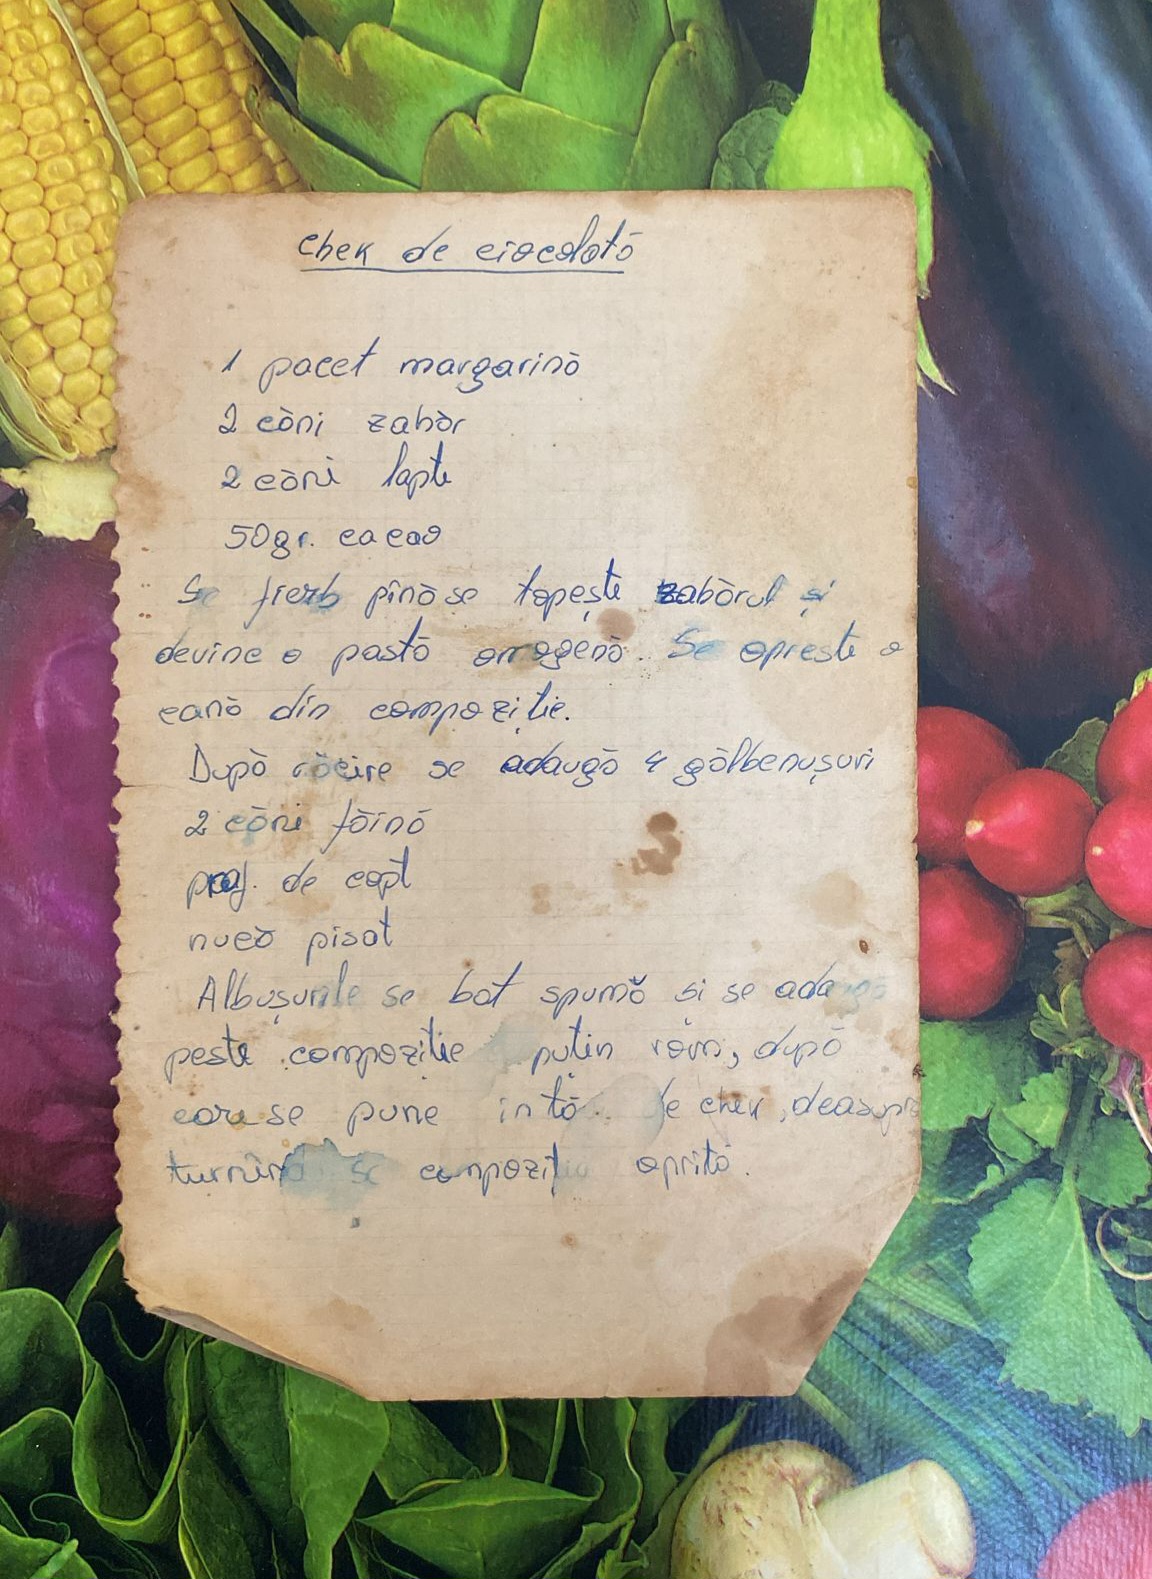 Chek de ciocolată
1 pacet margarină
2 căni zahăr
2 căni lapte
50gr. cacao
Se fierb pînă se topește zahărul și
devine o pastă omogenă. Se oprește o
cană din compoziție.
După răcire se adaugă 4 gălbenușuri
2 căni făină
praf. de copt
nucă pisat
Albușurile se bat spumă și se adaugă
peste compoziție puțin rom, după
care se pune în de chek, deasupra
turnînd se compoziția oprită.